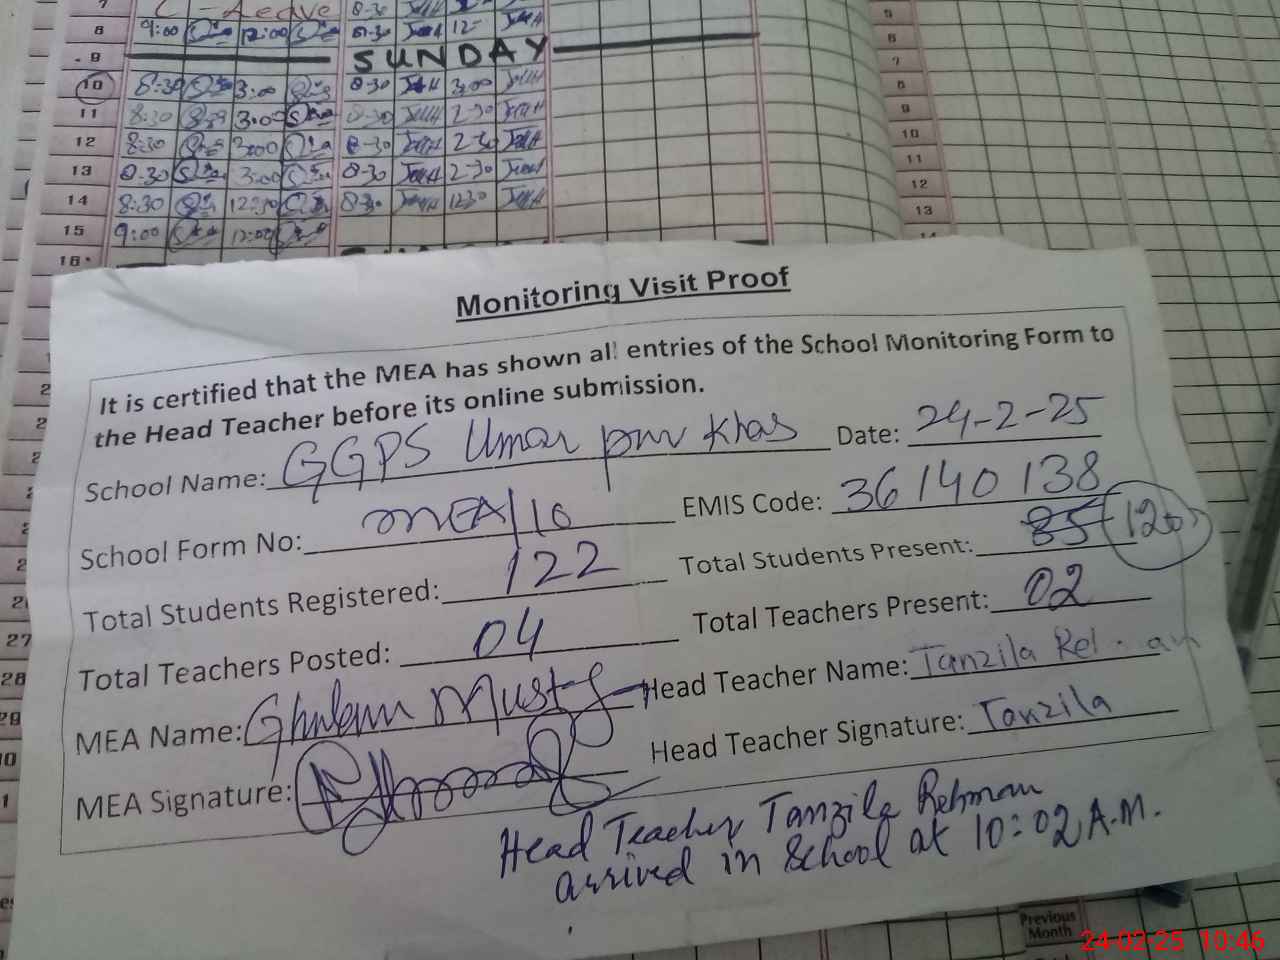 7 C-Leave 8-30
8 9:00 12:00 8-30 12- 
9 SUNDAY
10 8:30 3:00 8-30 3:00
11 8:30 3:00 8-30 2-30
12 8:30 3:00 8-30 2-30
13 8:30 3:00 8-30 2-30
14 8:30 12:30 8-30 1230
15 9:00 12:00
16
5
6
7
8
9
10
11
12
13
14
Monitoring Visit Proof
It is certified that the MEA has shown all entries of the School Monitoring Form to
the Head Teacher before its online submission.
School Name: GGPS Umar pur Khas Date: 24-2-25
School Form No: MEA/10 EMIS Code: 36140138
Total Students Registered: 122 Total Students Present: 85 120
Total Teachers Posted: 04 Total Teachers Present: 02
MEA Name: Ghulam Mustafa Head Teacher Name: Tanzila Rehman
MEA Signature: Head Teacher Signature: Tanzila
Head Teacher Tanzila Rehman
arrived in School at 10:02 A.M.
27
28
29
Previous
Month
24-02-25 10:46